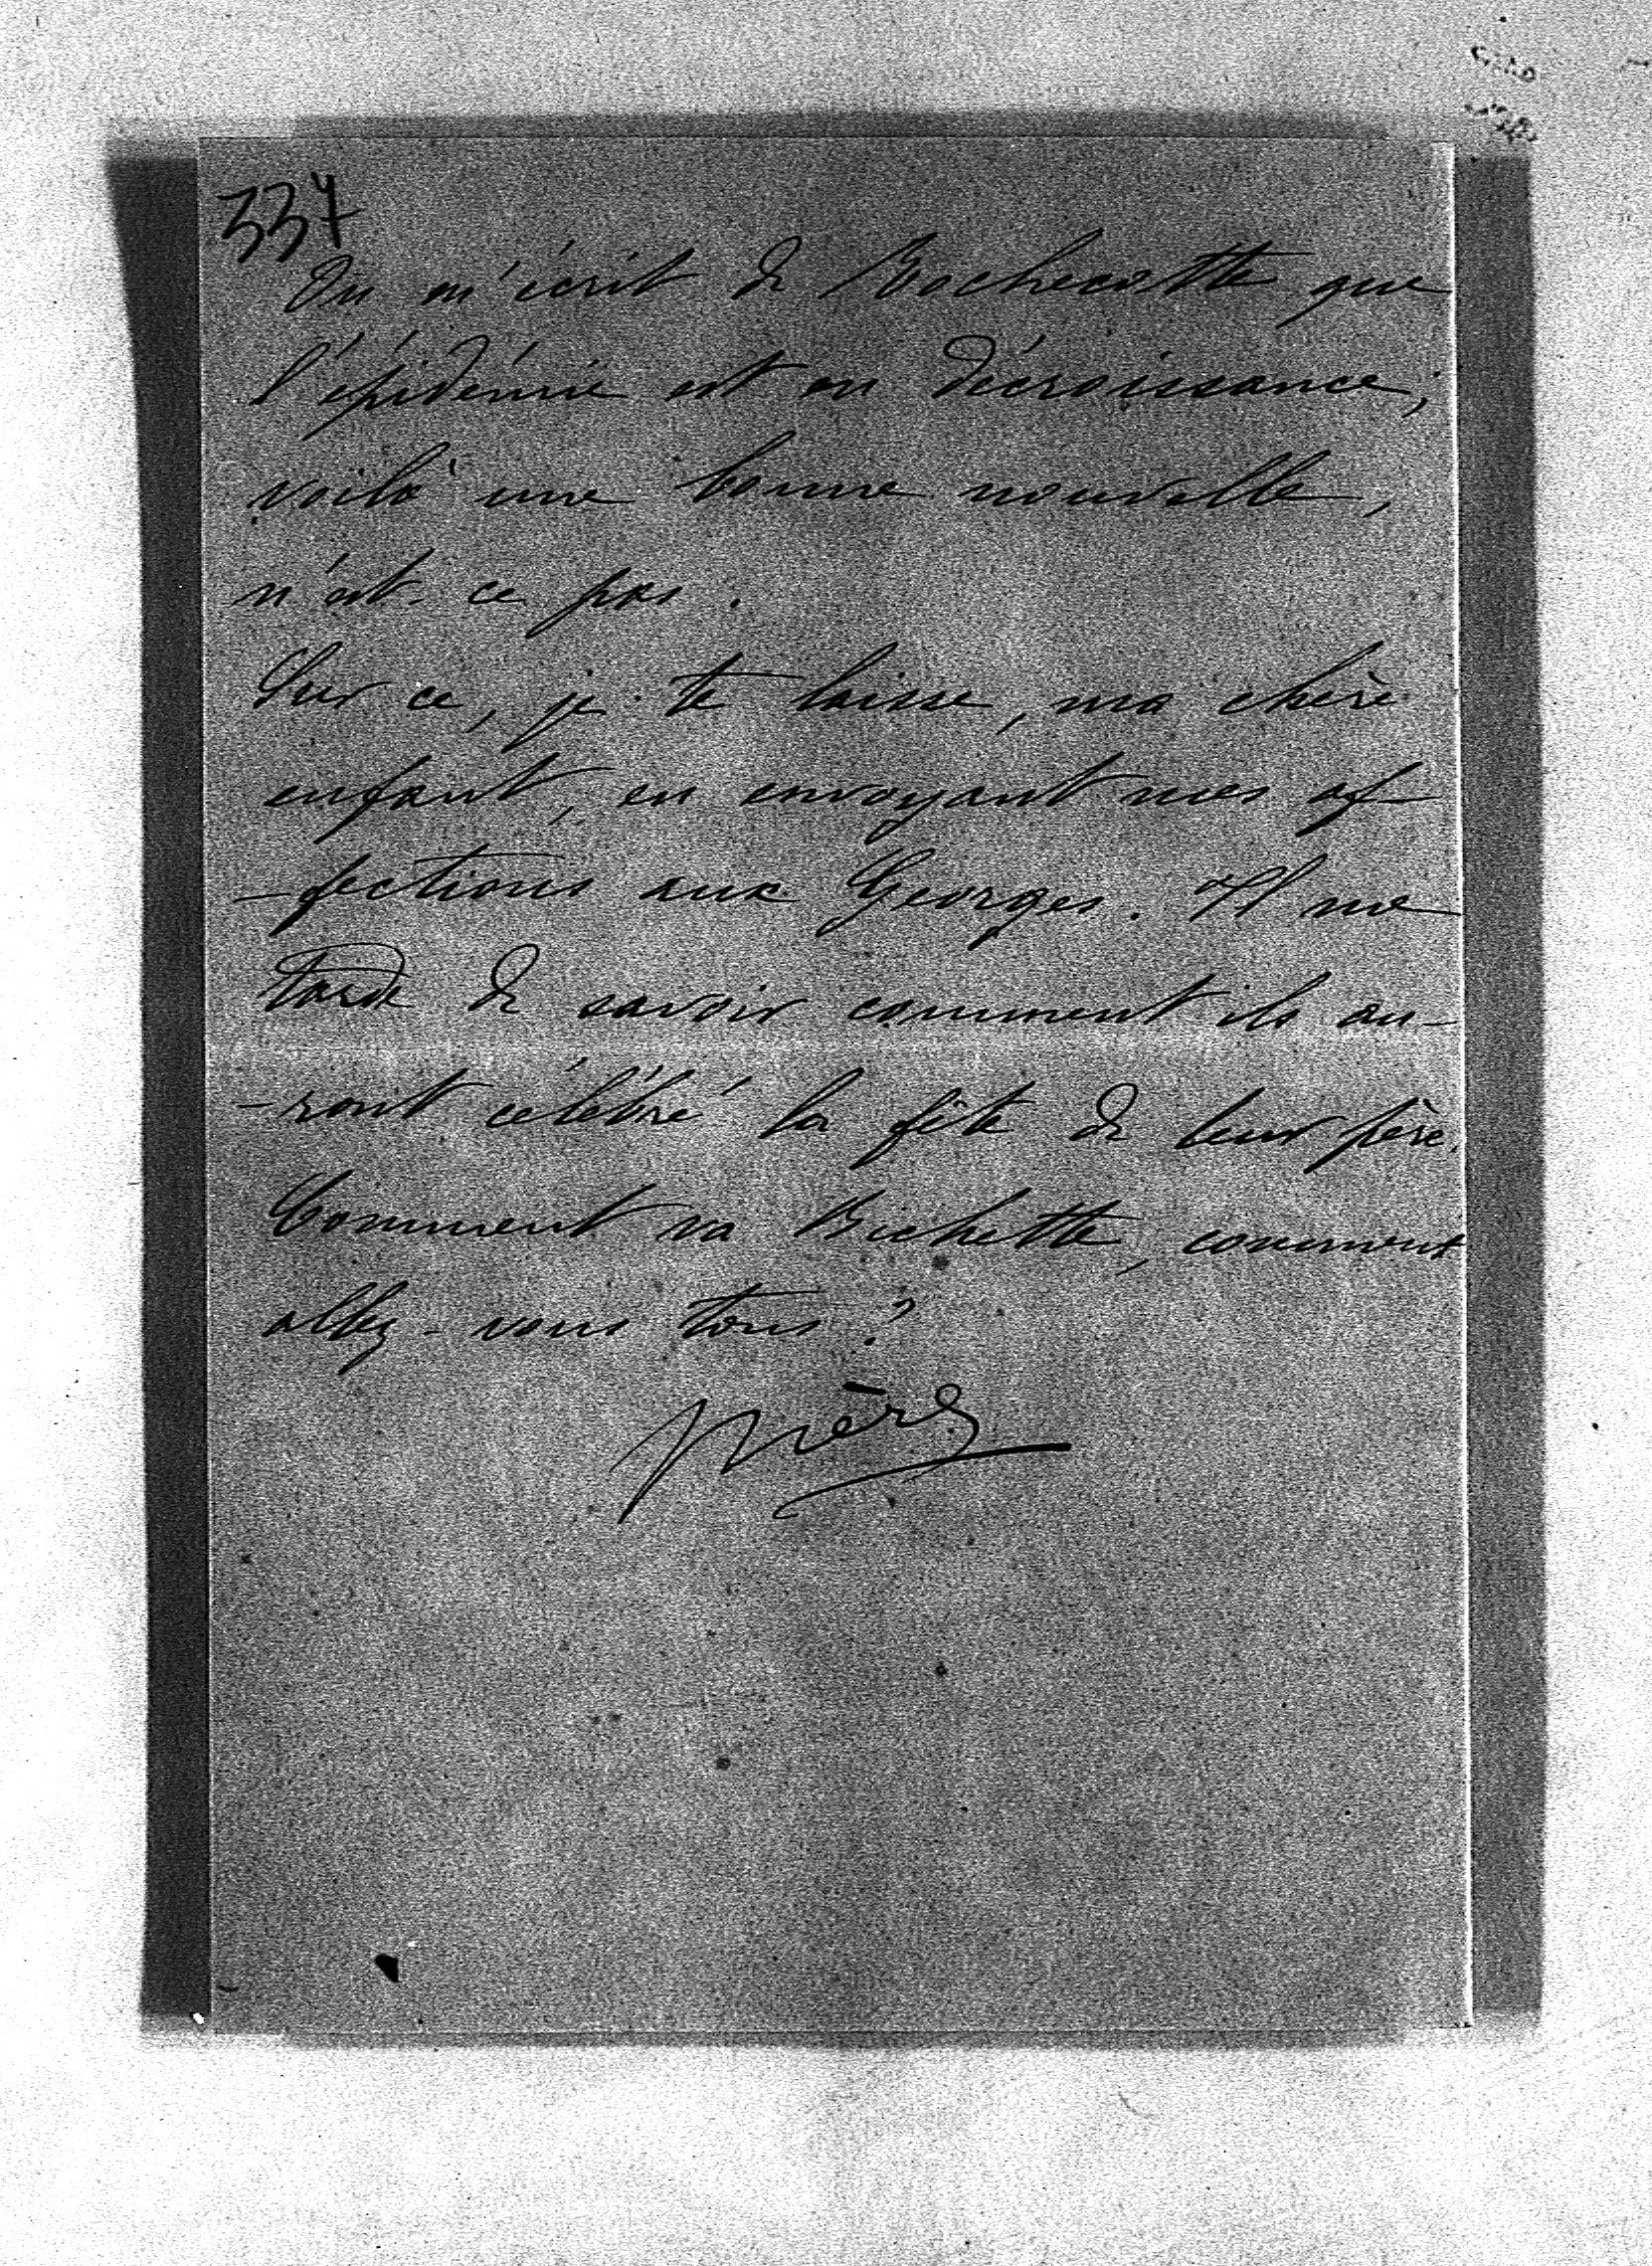 337
On m'écrit de Rochecotte que
l'épidémie est en décroissance,
voilà une bonne nouvelle,
n'est-ce pas.
Sur ce, je te laisse, ma chère
enfant, en envoyant mes af-
-fections aux Georges. Il me
tarde de savoir comment ils au-
-ront célébré la fête de leur père.
Comment va Bichette, comment
allez-vous tous ?
Mère